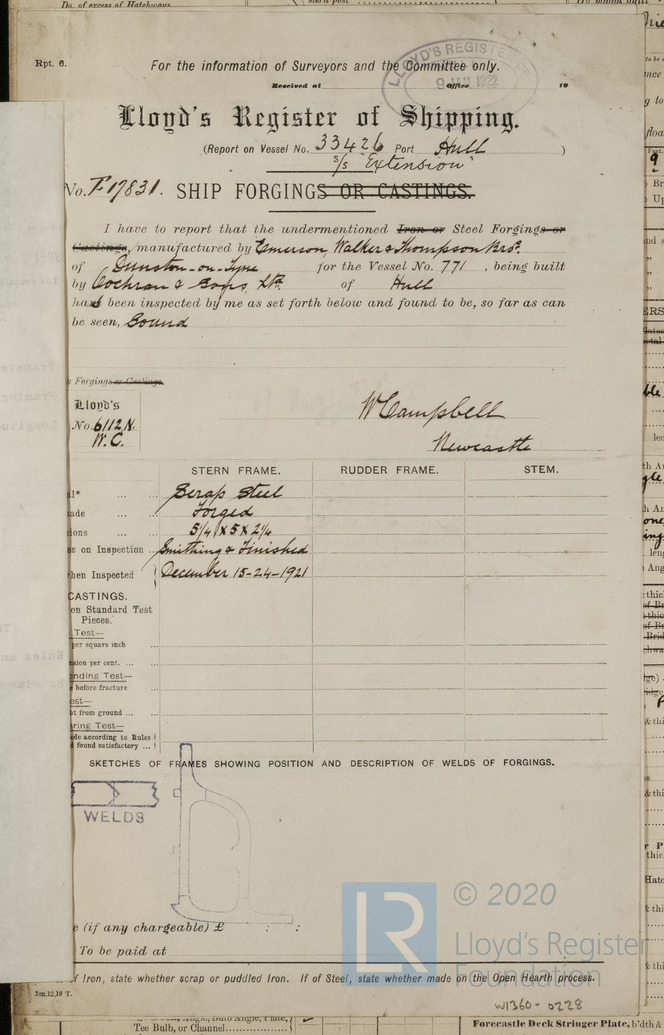 Do. of excess of Hatchways
stern post
Rpt. 6.
For the information of Surveyors and the Committee only.
LLOYD'S REGISTER OF
9 JAN 1922
Received at Office 19
Lloyd's Register of Shipping.
(Report on Vessel No. 33426 Port Hull )
s/s "Extension"
No. F.17831. SHIP FORGINGS OR CASTINGS.
I have to report that the undermentioned Iron or Steel Forgings or
Castings, manufactured by Emerson, Walker & Thompson Bros.
of Dunston-on-Tyne for the Vessel No. 771 , being built
by Cochran & Sons Ltd. of Hull
have been inspected by me as set forth below and found to be, so far as can
be seen, Sound
Forgings or Castings.
Lloyd's
No. 6112 N.
W.C.
W Campbell
Newcastle
STERN FRAME. RUDDER FRAME. STEM.
Scrap Steel
Forged
5¼ x 5 x 2¼
on Inspection Smithing & Finished
hen Inspected December 15-24-1921
CASTINGS.
on Standard Test
Pieces.
Test—
per square inch
sion per cent.
nding Test—
before fracture
est—
t from ground
ring Test—
de according to Rules
found satisfactory
SKETCHES OF FRAMES SHOWING POSITION AND DESCRIPTION OF WELDS OF FORGINGS.
WELDS
e (if any chargeable) £ : :
To be paid at
© 2020
LR
Lloyd's Register
Foundation
of Iron, state whether scrap or puddled Iron. If of Steel, state whether made on the Open Hearth process.
2m,12,19 T.
W1360-0228
Tee Bulb, or Channel
Forecastle Deck Stringer Plate, b'dth &